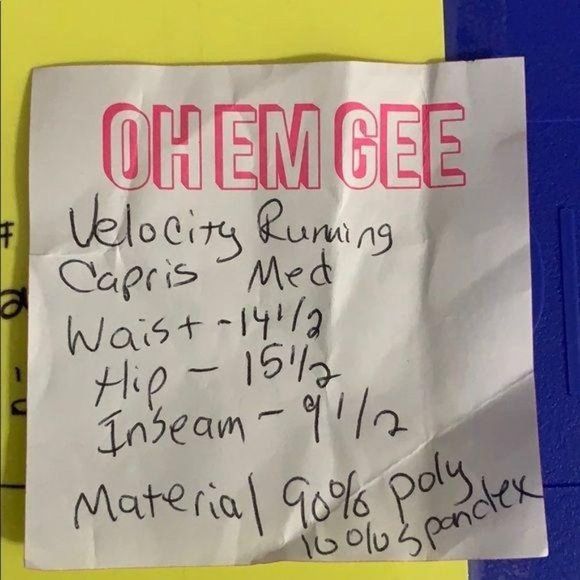 OH EM GEE
Velocity Running
Capris Med
Waist - 14 1/2
Hip - 15 1/2
Inseam - 9 1/2
Material 90% poly
10% Spandex